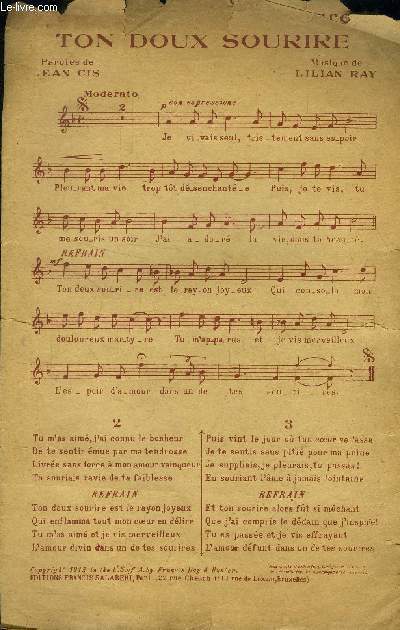 TON DOUX SOURIRE
Paroles de
JEAN CIS
Musique de
LILIAN RAY
Moderato
2
p con espressione
Je vi_vais seul, tris_tement sans espoir
Pleurant ma vie trop tôt dé_senchanté_e Puis, je te vis, tu
me souris un soir J'ai a_do_ré la vie, sans la
REFRAIN
mf
Ton doux souri_re est le ray_on joy_eux Qui con_so_la mon
douloureux marty_re Tu m'ap_pa_rus et je vis merveilleux
L'es_poir d'amour dans un de tes sou_ri_res.
2
Tu m'as aimé, j'ai connu le bonheur
De te sentir émue par ma tendresse
Livrés sans force à mon amour vainqueur
Tu souriais ravie de ta faiblesse
REFRAIN
Ton doux sourire est le rayon joyeux
Qui enflamma tout mon cœur en délire
Tu m'as aimé et je vis merveilleux
L'amour divin dans un de tes sourires.
3
Puis vint le jour où ton cœur se lasse
Je te sentis sans pitié pour ma peine
Je suppliais, je pleurais, tu passas!
En souriant l'âme à jamais lointaine
REFRAIN
Et ton sourire alors fût si méchant
Que j'ai compris le dédain que j'inspire!
Tu es passée et je vis effrayant
L'amour défunt dans un de tes sourires
Copyright 1913 in the U.S. of A. by Francis Day & Hunter.
EDITIONS FRANCIS SALABERT, Paris, 22 rue Chauchat